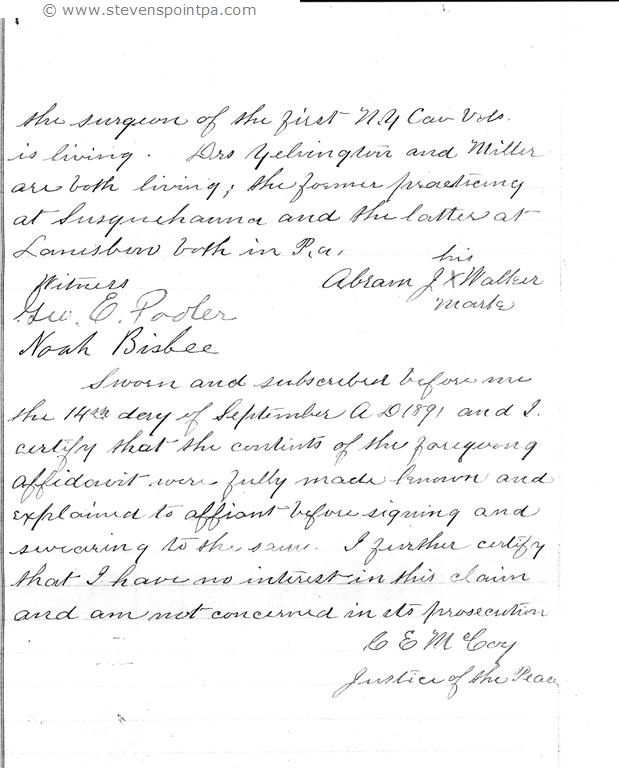 © www.stevenspointpa.com
the surgeon of the first N.Y Cav Vols.
is living. Drs Yelvington and Miller
are both living; the former practicing
at Susquehanna and the latter at
Lanesboro both in Pa.
his
Witness Abram J X Walker
mark
Geo. E. Pooler
Noah Bisbee
Sworn and subscribed before me
the 14th day of September A D 1891 and I
certify that the contents of the foregoing
affidavit were fully made known and
explained to affiant before signing and
swearing to the same. I further certify
that I have no interest in this claim
and am not concerned in its prosecution
C E McCoy
Justice of the Peace